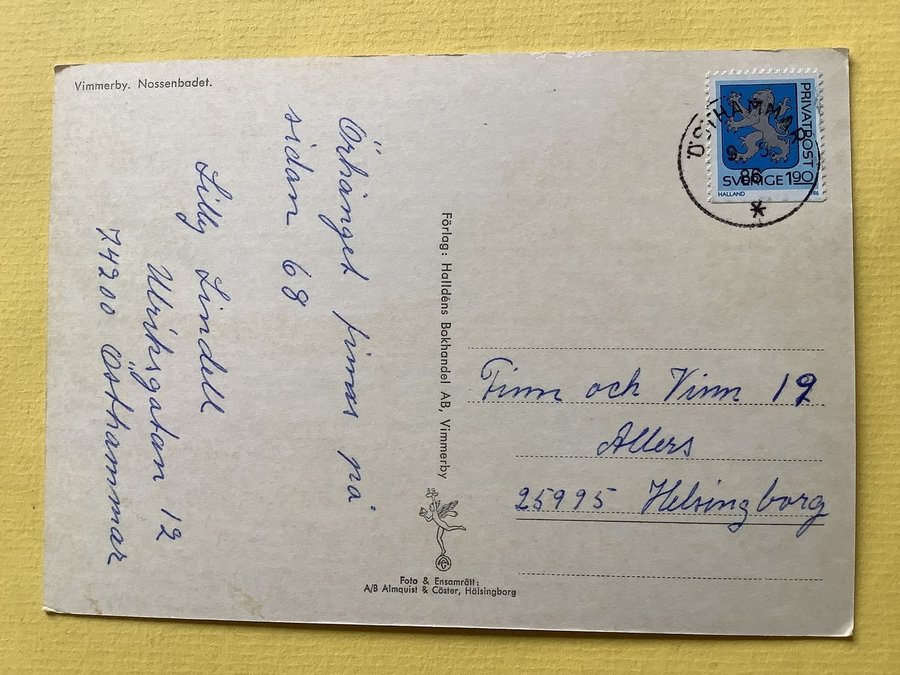 Vimmerby. Nossenbadet.
Örhänget finns på
sidan 68
Lilly Lindell
Ulriksgatan 12
74200 Östhammar
Förlag: Halldéns Bokhandel AB, Vimmerby
Foto & Ensamrätt:
A/B Almquist & Cöster, Hälsingborg
PRIVATPOST
SVERIGE 190
HALLAND
86
ÖSTHAMMAR
86
Finn och Vinn 19
Allers
25995 Helsingborg